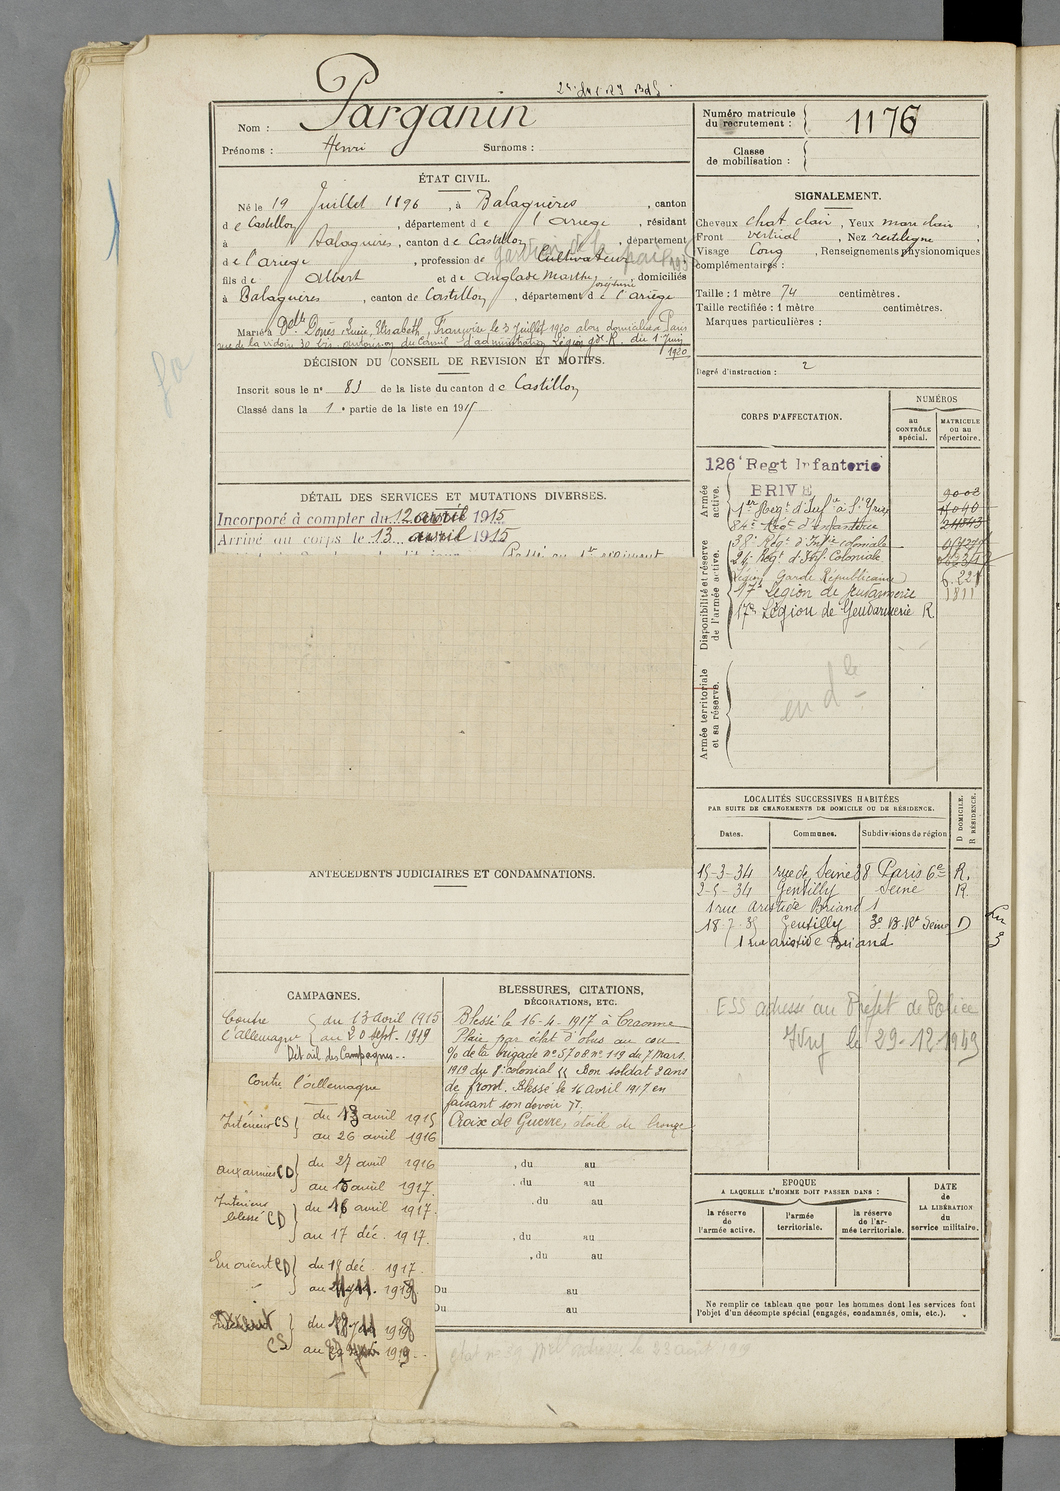 Parganin
Nom :
Prénoms : Henri Surnoms :
Numéro matricule du recrutement : 1176
Classe de mobilisation :
ÉTAT CIVIL.
Né le 19 Juillet 1896, à Balaguères, canton
de Castillon, département de l'Ariège, résidant
à Balaguères, canton de Castillon, département
de l'Ariège, profession de Cultivateur gardien de la paix
fils de Albert et de Anglade Marthe Joséphine, domiciliés
à Balaguères, canton de Castillon, département de l'Ariège
Marié à Delle Elisabeth, Françoise le 3 Juillet 1920 alors domiciliée à Paris
rue de la 30 bis. autorision du Conseil d'administration Légion gde R. du 1 Juin
1920
DÉCISION DU CONSEIL DE REVISION ET MOTIFS.
Inscrit sous le n° 83 de la liste du canton de Castillon
Classé dans la 1e partie de la liste en 1915
DÉTAIL DES SERVICES ET MUTATIONS DIVERSES.
Incorporé à compter du 12 avril 1915
Arrivé au corps le 13 avril 1915
Passé au 1er régiment
ANTÉCÉDENTS JUDICIAIRES ET CONDAMNATIONS.
CAMPAGNES.
Contre l'Allemagne { du 13 avril 1915
au 20 Sept. 1919
Détail des Campagnes..
Contre l'allemagne
Intérieur CS } du 13 avril 1915
au 26 avril 1916
aux armées CD } du 27 avril 1916
au 15 avril 1917.
Intérieur blessé CD } du 16 avril 1917.
au 17 déc. 1917.
En orient CD } du 18 déc 1917.
au 1918
CS } du 18 11 1918
au 1919
BLESSURES, CITATIONS,
DÉCORATIONS, ETC.
Blessé le 16-4-1917 à Craonne
Plaie par éclat d'obus au cou
% de la brigade n° 5708 n° 119 du 7 Mars
1919 du 8e colonial "Bon soldat 2 ans
de front. Blessé le 16 avril 1917 en
faisant son devoir".
Croix de Guerre, étoile de bronze
, du au
, du au
, du au
, du au
, du au
Du au
Du au
SIGNALEMENT.
Cheveux chat clair, Yeux mar clair
Front vertical, Nez rectiligne
Visage Long, Renseignements physionomiques
complémentaires :
Taille : 1 mètre 74 centimètres.
Taille rectifiée : 1 mètre centimètres.
Marques particulières :
Degré d'instruction : 2
CORPS D'AFFECTATION.
NUMÉROS
au CONTRÔLE spécial.
MATRICULE ou au répertoire.
Armée active.
126e Regt Infanterie
BRIVE
1er Regt d'Infie à St Yrieix
84e Regt d'infanterie
Disponibilité et réserve de l'armée active.
38e Régt d'Infie coloniale
24e Régt d'Inf. Coloniale
Légion Garde Républicaine 6.221
17e Légion de Gendarmerie 1811
17e Légion de Gendarmerie R
Armée territoriale et sa réserve.
en dle
LOCALITÉS SUCCESSIVES HABITÉES
PAR SUITE DE CHANGEMENTS DE DOMICILE OU DE RÉSIDENCE.
Dates. Communes. Subdivisions de région D DOMICILE. R RÉSIDENCE.
15-3-34 rue de Seine 38 Paris 6e R.
2-5-34 Gentilly Seine R.
1 rue Aristide Briand 1
18-7-35 Gentilly 3e B. Rt Seine D
1 rue aristide Briand
ESS adressé au Préfet de Police
Ivry le 29-12-1949
EPOQUE
A LAQUELLE L'HOMME DOIT PASSER DANS :
la réserve de l'armée active.
l'armée territoriale.
la réserve de l'armée territoriale.
DATE de LA LIBÉRATION du service militaire.
Ne remplir ce tableau que pour les hommes dont les services font
l'objet d'un décompte spécial (engagés, condamnés, omis, etc.).